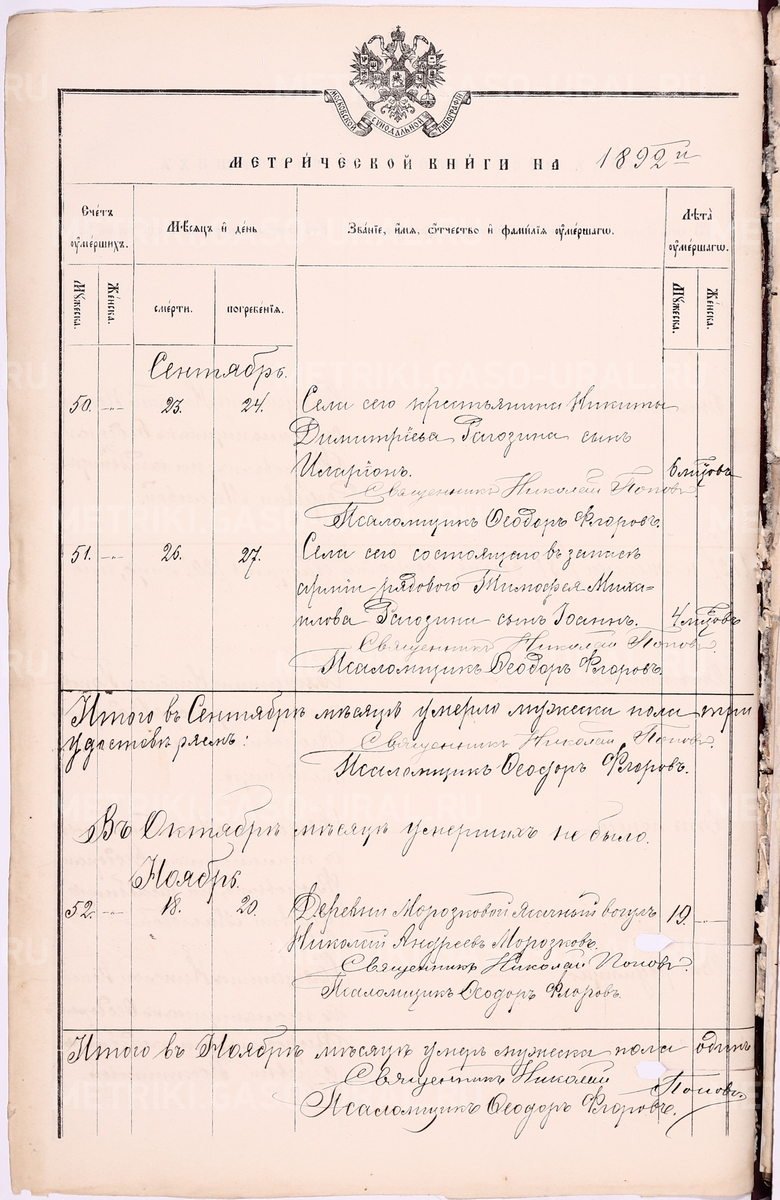 МОСКОВСКОЙ СѴНОДАЛЬНОЙ ТИПОГРАФІИ
МЕТРИ́ЧЕСКОЙ КНИ́ГИ НА 1892 й
Сче́тъ ᲂу҆ме́ршихъ.
Мѣ́сѧцъ и҆ де́нь
Зва́нїе, и҆́мѧ, ѻ҆́тчество и҆ фами́лїѧ ᲂу҆ме́ршагѡ.
Лѣ́та ᲂу҆ме́ршагѡ.
Мꙋ́жеска.
Же́нска.
сме́рти.
погребе́нїѧ.
Мꙋ́жеска.
Же́нска.
Сентябрь.
50. -„- 23. 24. Села сего крестьянина Никиты
Димитріева Рагозина сынъ
Иларіонъ. 6 мцовъ
Священникъ Николай Поповъ.
Псаломщикъ Ѳеодоръ Флоровъ.
51. -„- 26. 27. Села сего состоящаго въ запасѣ
арміи рядового Тимофея Миха-
илова Рагозина сынъ Іоаннъ. 4 мцовъ
Священникъ Николай Поповъ.
Псаломщикъ Ѳеодоръ Флоровъ.
Итого въ Сентябрѣ мѣсяцѣ умерло мужеска пола три
удостовѣряемъ: Священникъ Николай Поповъ.
Псаломщикъ Ѳеодоръ Флоровъ.
Въ Октябрѣ мѣсяцѣ умершихъ не было.
Ноябрь.
52. -„- 18. 20. Деревни Морозковой ясачный вогулъ 19. -„-
Николай Андреевъ Морозковъ.
Священникъ Николай Поповъ.
Псаломщикъ Ѳеодоръ Флоровъ.
Итого въ Ноябрѣ мѣсяцѣ умеръ мужеска пола одинъ
Священникъ Николай Поповъ.
Псаломщикъ Ѳеодоръ Флоровъ.